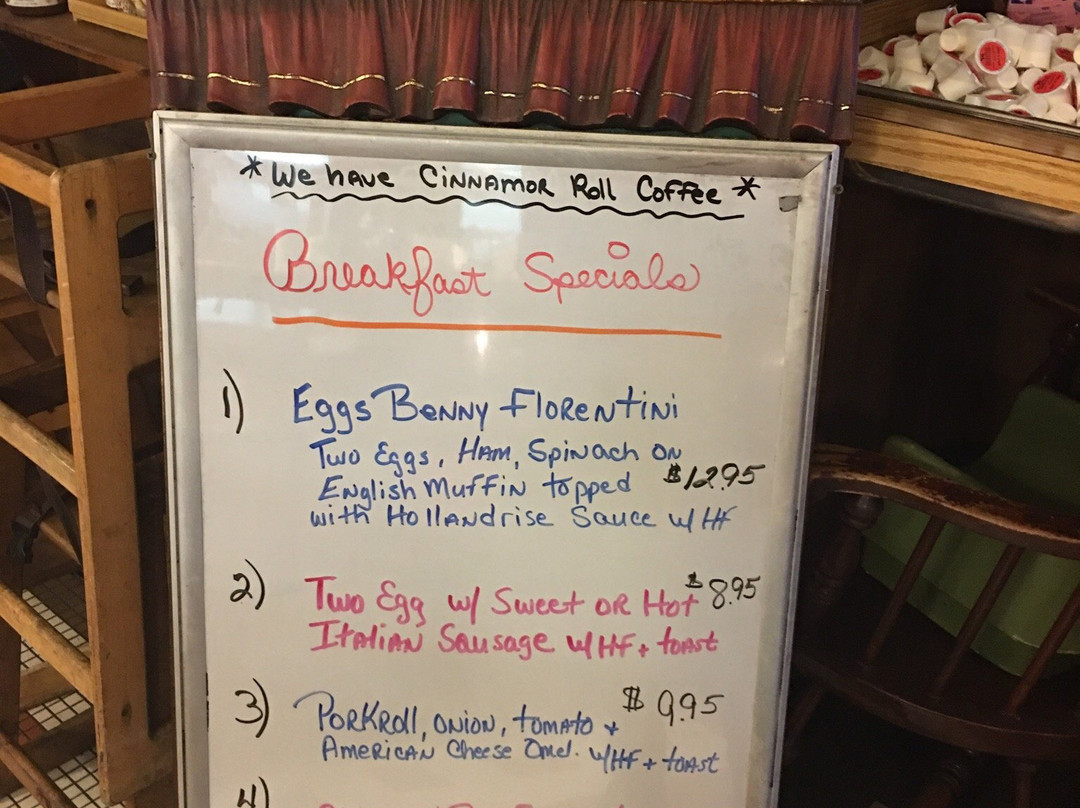 *We have Cinnamor Roll Coffee*
Breakfast Specials
1) Eggs Benny Florentini
Two Eggs, Ham, Spinach on
English Muffin topped $12.95
with Hollandrise Sauce w/ HF
2) Two Egg w/ Sweet or Hot $8.95
Italian Sausage w/ HF + toast
3) Porkroll, onion, tomato + $9.95
American Cheese Omel. w/HF + toast
4)